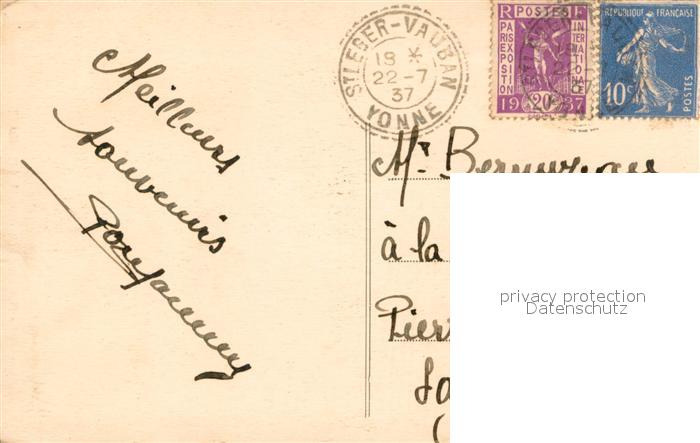 Meilleurs
souvenirs
ST LEGER-VAUBAN
18 *
22-7
37
YONNE
R POSTES F
PARIS EXPOSITION
INTERNATIONALE
1937
20c
RÉPUBLIQUE FRANÇAISE
10c
POSTES
Mr
à la
privacy protection
Datenschutz